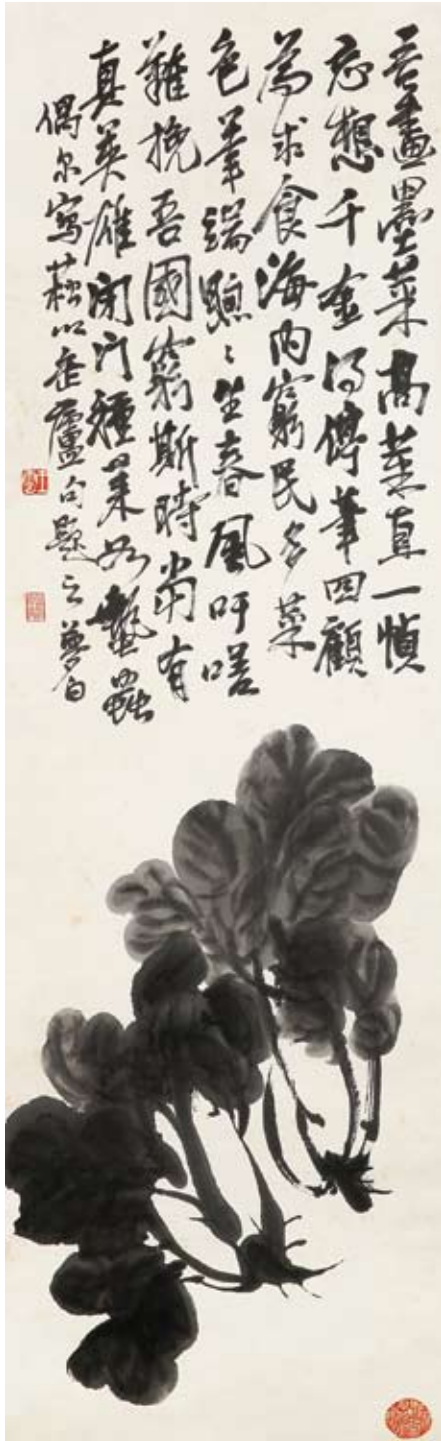 吾畫墨菜高直一幀
想千金得停筆四顧
為求食海内窮民多菜
色筆端生春風吁嗟
難挽吾國窮斯時尚有
真英雄閉門種菜如蟄蟲
偶尔寫菘以缶廬句題之夢白